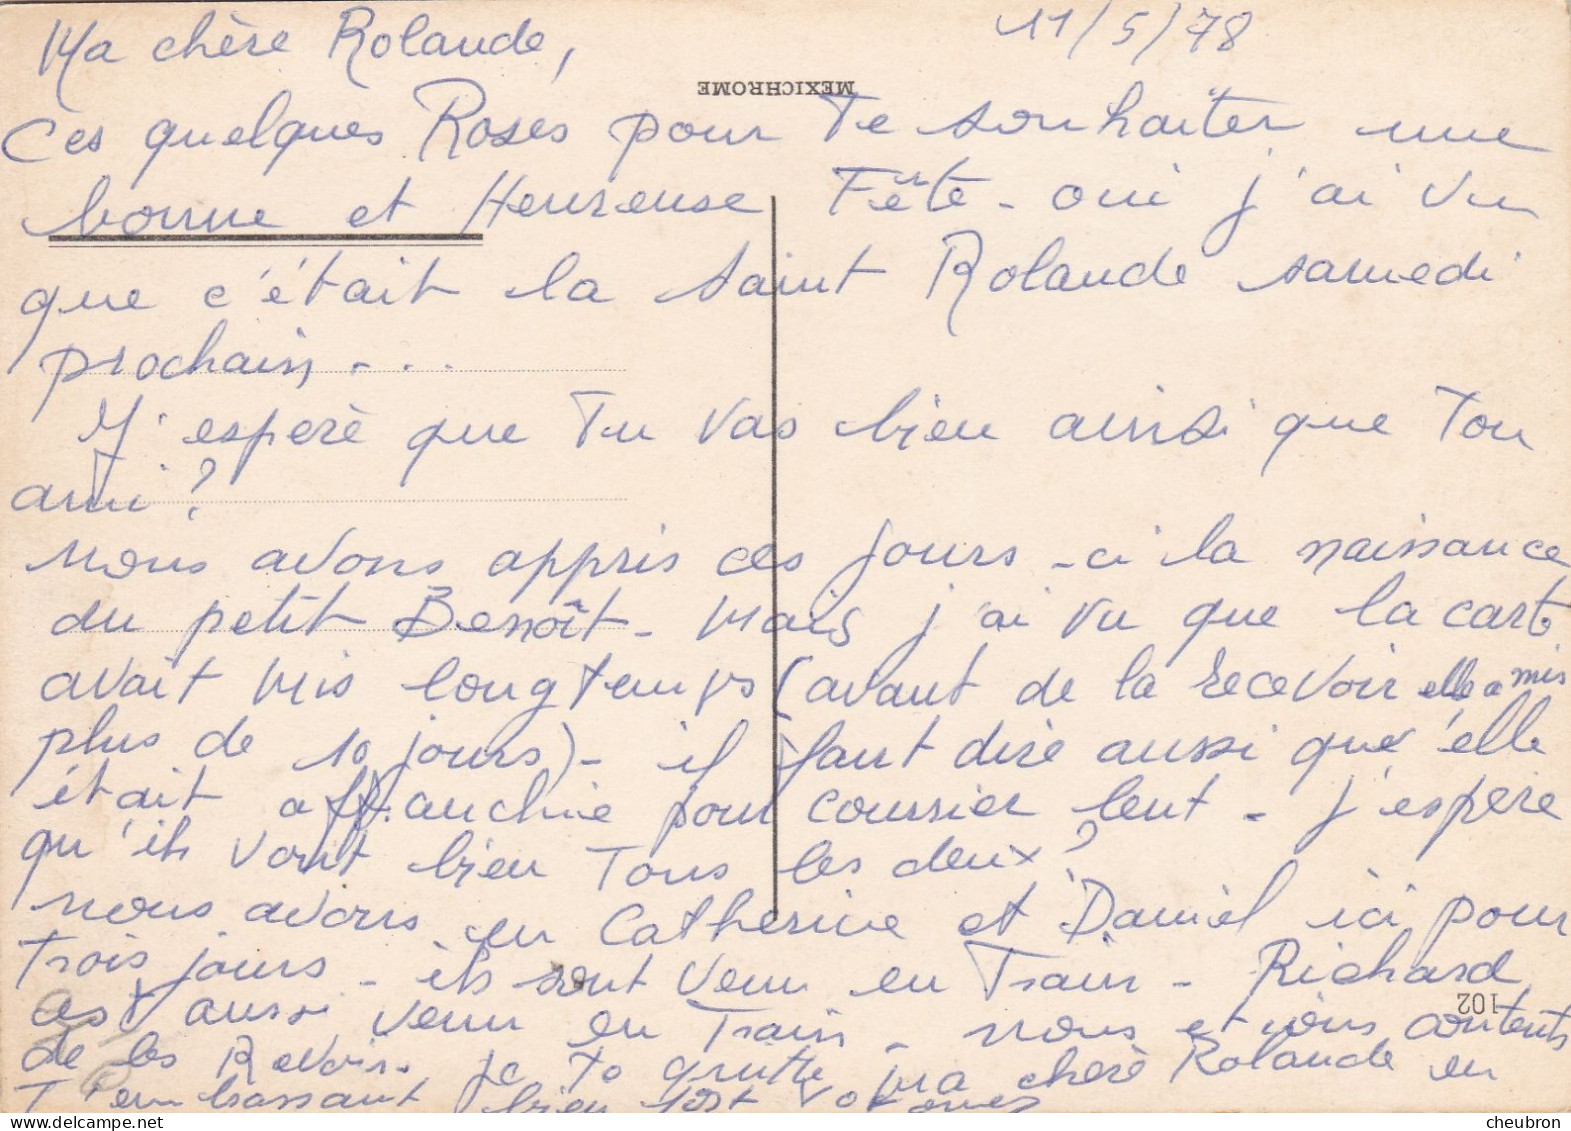 Ma chère Rolande,
11/5/78
MEXICHROME
Ces quelques Roses pour Te souhaiter une
bonne et Heureuse Fête - oui j'ai vu
que c'était la Saint Rolande samedi
prochain - ...
J'esperè que Tu vas bien ainsi que Ton
ami ?
nous avons appris ces jours - ci la naissance
du petit Benoît - Mais j'ai vu que la carte
avait mis longtemps (avant de la recevoir elle a mis
plus de 10 jours) - il faut dire aussi qu'elle
était affranchie pour courrier lent - j'espère
qu'ils vont bien Tous les deux ?
nous avons eu Catherine et Daniel ici pour
Trois jours - ils sont venu en Train - Richard
est aussi venu en Train - nous étions contents
102
de les Revoir. Je te quitte ma chère Rolande en
T'embrassant bien fort
cheubron